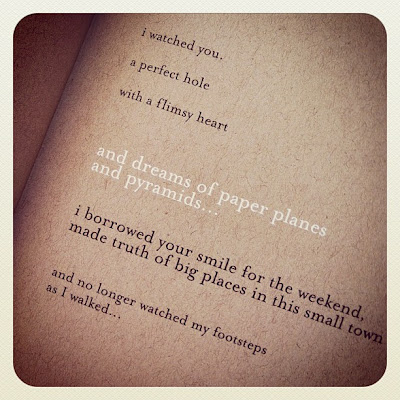 i watched you,
a perfect hole
with a flimsy heart
and dreams of paper planes
and pyramids...
i borrowed your smile for the weekend,
made truth of big places in this small town
and no longer watched my footsteps
as I walked...